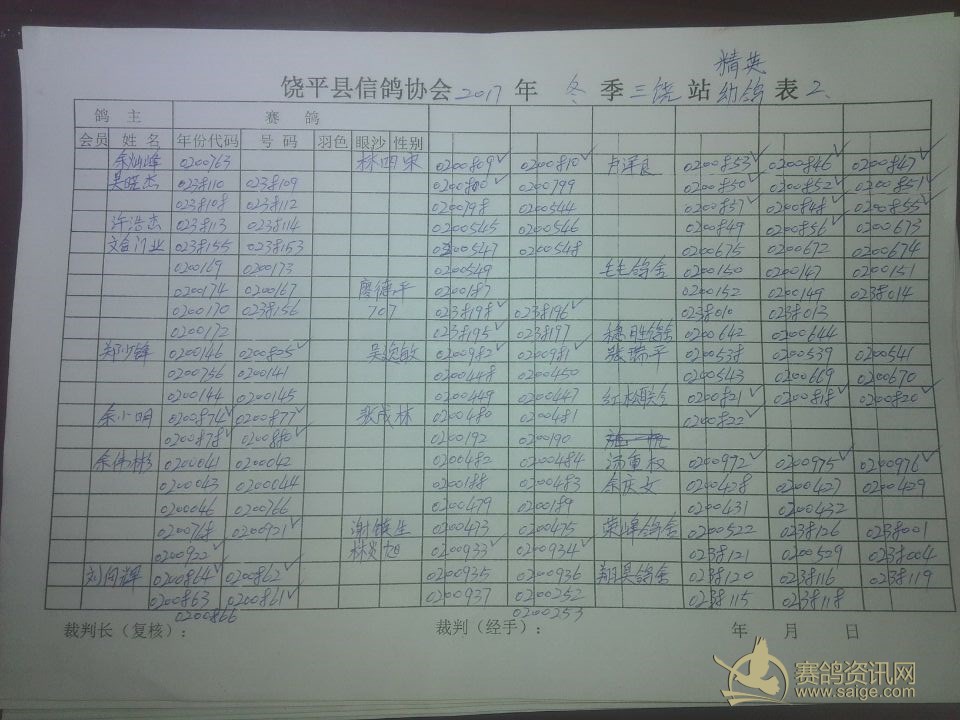 饶平县信鸽协会2017年 冬 季 三饶 站 精英幼鸽 表2.
鸽 主 赛 鸽
会员 姓 名 年份代码 号 码 羽色 眼沙 性别
余灿峰 0200763 林四宋 0200809✓ 0200810✓ 卢泽良 0200853✓ 0200846✓ 0200847✓
吴晓杰 0238110 0238109 0200800✓ 0200799 0200850✓ 0200852✓ 0200851✓
0238108 0238112 0200798 0200544 0200857✓ 0200848✓ 0200855✓
许浩杰 0238113 0238114 0200545 0200546 0200849 0200856✓ 0200673
门业 0238155 0238153 0200547 0200548 0200675 0200672 0200674
0200169 0200173 0200549 毛毛鸽舍 0200150 0200147 0200151
0200174 0200167 廖德平 0200187 0200152 0200149 0238014
0200170 0238156 707 0238198✓ 0238196✓ 0238010 0238013
0200172 0238195✓ 0238197 穗胜鸽舍 0200642 0200644
郑少锋 0200146 0200825✓ 吴欢敏 0200982✓ 0200981✓ 张瑞平 0200538 0200539 0200541
0200756 0200141 0200448 0200450 0200543 0200669 0200670
0200144 0200145 0200449 0200447 红松联合 0200821✓ 0200818✓ 0200820✓
余小明 0200874✓ 0200877✓ 张成林 0200480 0200481 0200822✓
0200878✓ 0200880✓ 0200192 0200190
余伟彬 0200041 0200042 0200482 0200484 汤重权 0200972✓ 0200975✓ 0200976✓
0200043 0200044 0200188 0200483 余庆文 0200428 0200427 0200429
0200046 0200766 0200479 0200189 0200431 0200432
0200768 0200921✓ 谢维生 0200473 0200475 荣峰鸽舍 0200522 0238126 0238001
0200922✓ 林炎旭 0200933✓ 0200934✓ 0238121 0200529 0238004
刘向辉 0200864✓ 0200862✓ 0200935 0200936 翔昊鸽舍 0238120 0238116 0238119
0200863 0200861✓ 0200937 0200252 0238115 0238118
0200866 0200253
裁判长（复核）： 裁判（经手）： 年 月 日
赛鸽资讯网
www.saige.com